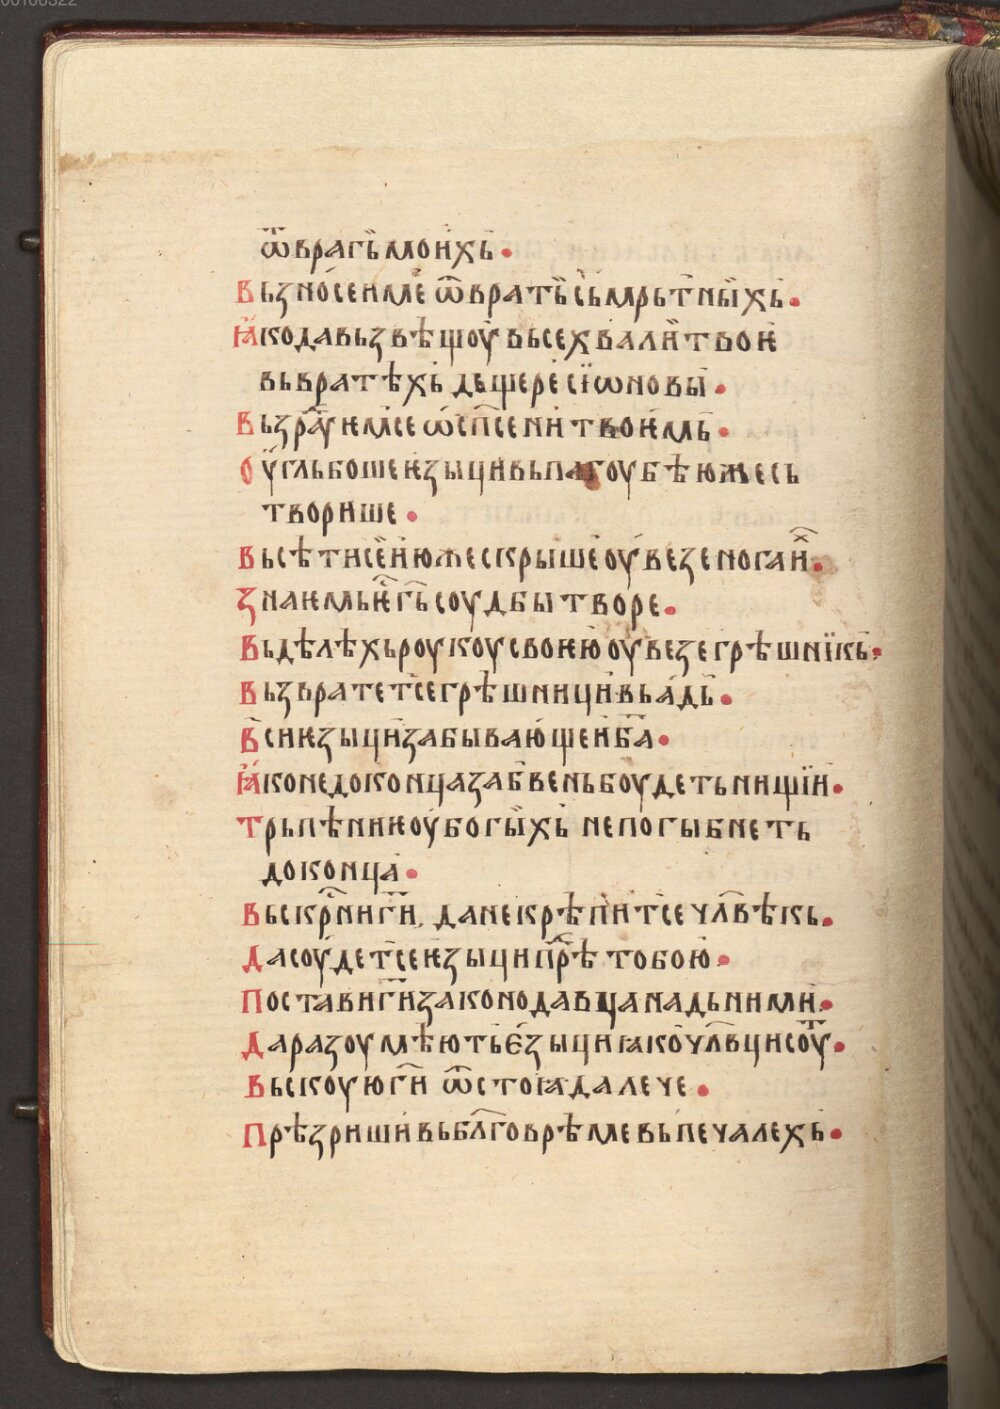 00108522
ѿ врагь моихь·
Вьзносеи ме ѿ врать сьмрьтныхь·
Ꙗко да вьзвѣщоу вьсе хвали твоѥ
вь вратѣхь дьщере сїѡновы·
Вьзраⷣуѥм се ѡ сп҃сени твоѥмь·
Оугльбоше ѥзыци вь пагоубѣ юже сь
творише·
Вь сѣти сеи юже скрыше оувезе нога иⷯ·
Знаѥмь ѥⷭ҇ гь соудбы творе·
Вь дѣлѣхь роукоу своѥю оувезе грѣшникь·
Вьзвратет се грѣшници вь адь·
Вси ѥзыци забывающеи б҃а·
Ꙗко не до конца забвень боудеть нищїи·
Трьпѣниѥ оубогыхь не погыбнеть
до конца·
Вьскрⷭ҇ни г҃и, да не крѣпит се чл҃вѣкь·
Да соудет се ѥзыци прⷣѣ тобою·
Постави г҃и законодавца надь ними·
Да разоумѣють ѥзыци ꙗко чл҃вци соуⷮ·
Вьскоую г҃и ѿстоꙗ далече·
Прѣзриши вь бл҃го врѣме вь печалехь·